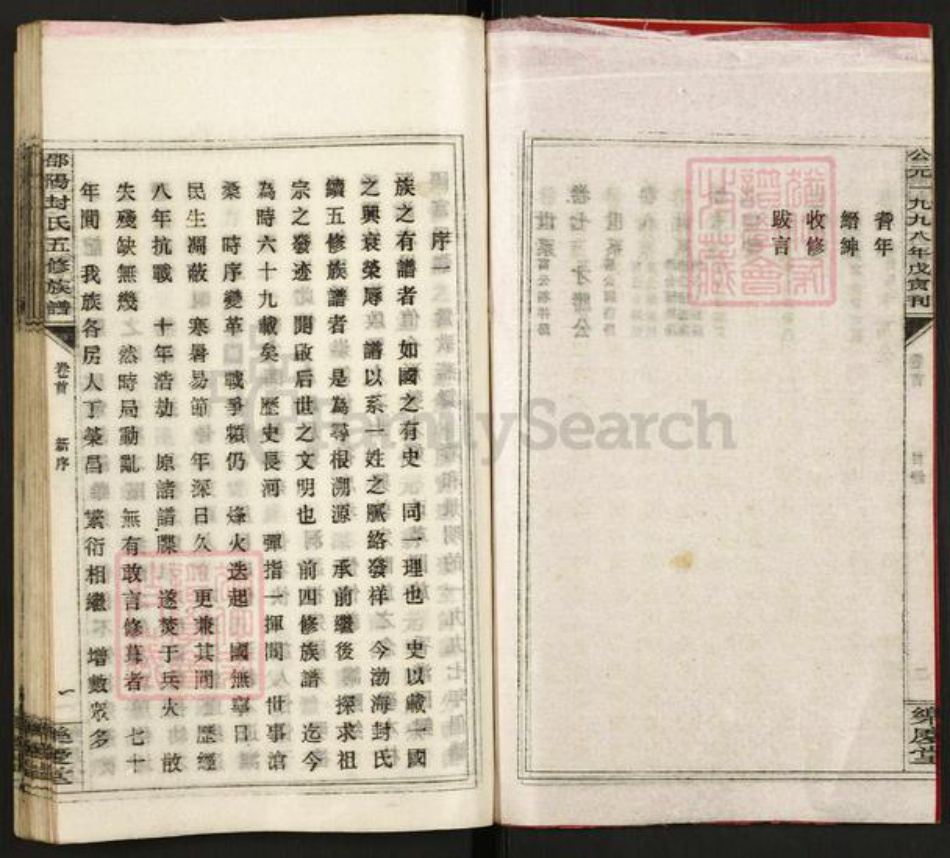 公元一九九八年戊寅刊
卷首
二
樂慶堂
耆年
縉紳
收修
跋言
序一
族之有譜者 如國之有史 同一理也 史以載一國
之興衰榮辱 譜以系一姓之脈絡發祥 今渤海封氏
續五修族譜者 是為尋根溯源 承前繼後 探求祖
宗之發迹 開啟后世之文明也 前四修族譜 迄今
為時六十九載矣 歷史長河 彈指一揮間 世事滄
桑 時序變革 戰爭頻仍 烽火迭起 國無寧日
民生凋蔽 寒暑易節 年深日久 更兼其間 歷經
八年抗戰 十年浩劫 原諸譜牒 遂焚于兵火 散
失殘缺無幾 然時局動亂 無有敢言修葺者 七十
年間 我族各房人丁榮昌 繁衍相繼 增數衆多
邵陽封氏五修族譜
卷首
新序
一
FamilySearch